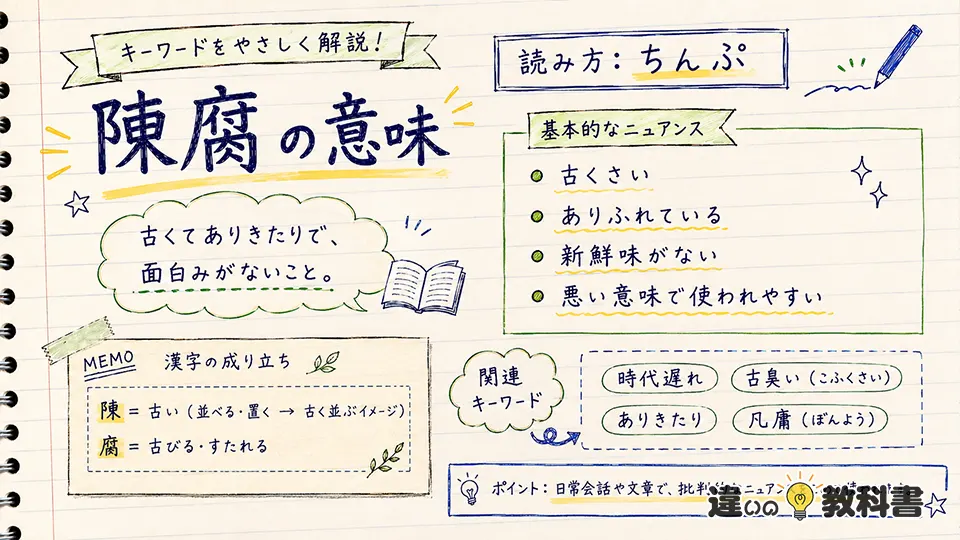 キーワードをやさしく解説！
陳腐の意味
古くてありきたりで、
面白みがないこと。
MEMO 漢字の成り立ち
陳 = 古い（並べる・置く → 古く並ぶイメージ）
腐 = 古びる・すたれる
読み方：ちんぷ
基本的なニュアンス
古くさい
ありふれている
新鮮味がない
悪い意味で使われやすい
関連
キーワード
時代遅れ
古臭い（こふくさい）
ありきたり
凡庸（ぼんよう）
ポイント：日常会話や文章で、批判的なニュアンス
違いの教科書